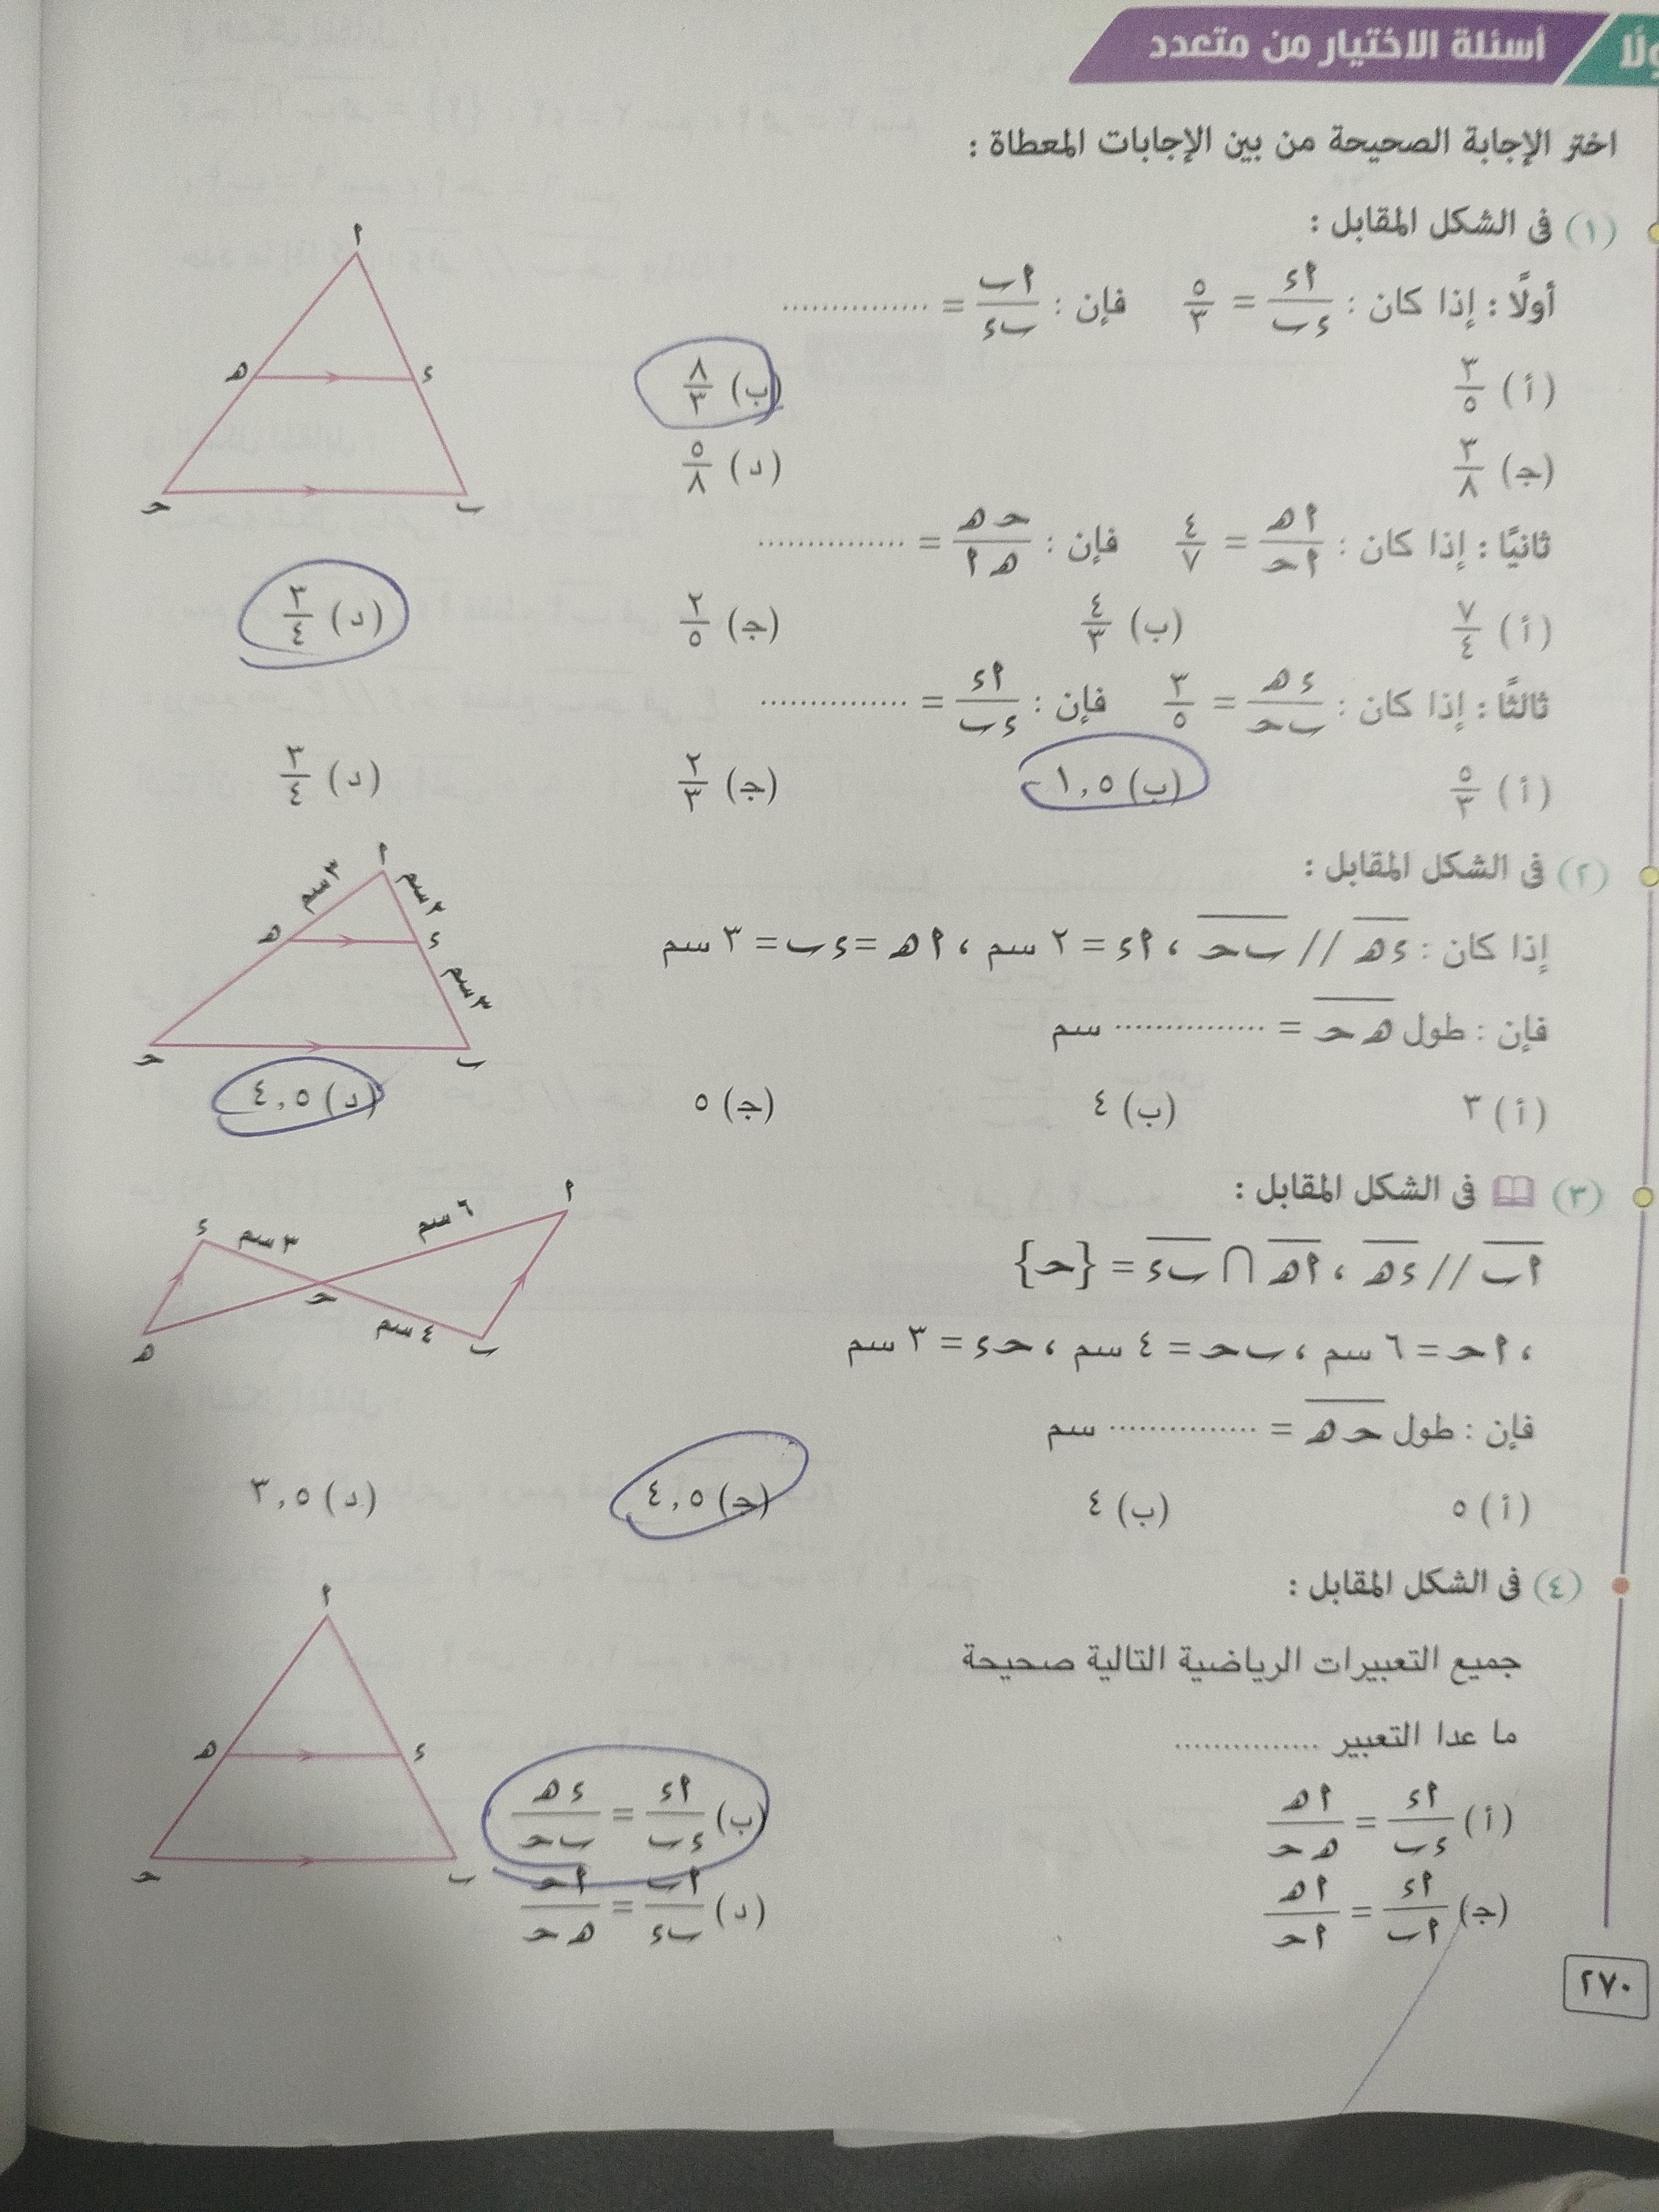 أسئلة الاختيار من متعدد
اختر الإجابة الصحيحة من بين الإجابات المعطاة :
(١) فى الشكل المقابل :
أولًا : إذا كان : أء/ءب = ٥/٣ فإن : أب/بء = ...............
(أ) ٣/٥ (ب) ٨/٣
(جـ) ٣/٨ (د) ٥/٨
ثانيًا : إذا كان : أهـ/أحـ = ٤/٧ فإن : حـهـ/هـأ = ...............
(أ) ٧/٤ (ب) ٤/٣ (جـ) ٢/٥ (د) ٣/٤
ثالثًا : إذا كان : ءهـ/بحـ = ٣/٥ فإن : أء/ءب = ...............
(أ) ٥/٣ (ب) ١,٥ (جـ) ٢/٣ (د) ٣/٤
أ
هـ ء
حـ ب
(٢) فى الشكل المقابل :
إذا كان : ءهـ // بحـ ، أء = ٢ سم ، أهـ = ءب = ٣ سم
فإن : طول هـحـ = ............... سم
(أ) ٣ (ب) ٤ (جـ) ٥ (د) ٤,٥
أ
٣ سم ٢ سم
هـ ء
٣ سم
حـ ب
(٣) فى الشكل المقابل :
أب // ءهـ ، أهـ ∩ بء = {حـ}
، أحـ = ٦ سم ، بحـ = ٤ سم ، حـء = ٣ سم
فإن : طول حـهـ = ............... سم
(أ) ٥ (ب) ٤ (جـ) ٤,٥ (د) ٣,٥
أ
ء ٣ سم ٦ سم
حـ
هـ ٤ سم ب
(٤) فى الشكل المقابل :
جميع التعبيرات الرياضية التالية صحيحة
ما عدا التعبير ...............
(أ) أء/ءب = أهـ/هـحـ (ب) أء/ءب = ءهـ/بحـ
(جـ) أء/أب = أهـ/أحـ (د) أب/بء = أحـ/هـحـ
أ
هـ ء
حـ ب
٢٧٠